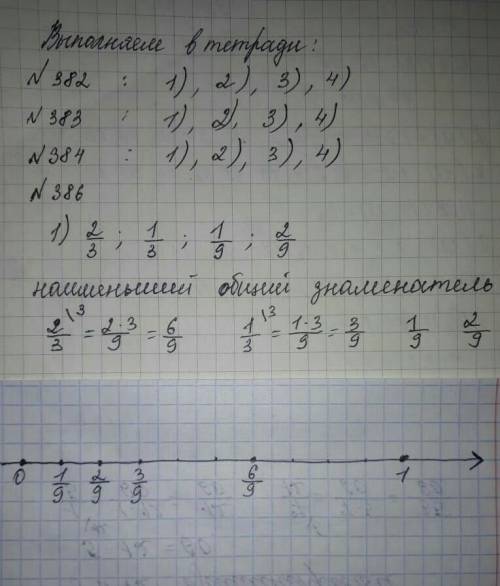 Выполняем в тетради:
№382 : 1), 2), 3), 4)
№383 : 1), 2), 3), 4)
№384 : 1), 2), 3), 4)
№386
1) 2/3 ; 1/3 ; 1/9 ; 2/9
наименьший общий знаменатель
2/3 \3 = 2·3/9 = 6/9 1/3 \3 = 1·3/9 = 3/9 1/9 2/9
0 1/9 2/9 3/9 6/9 1